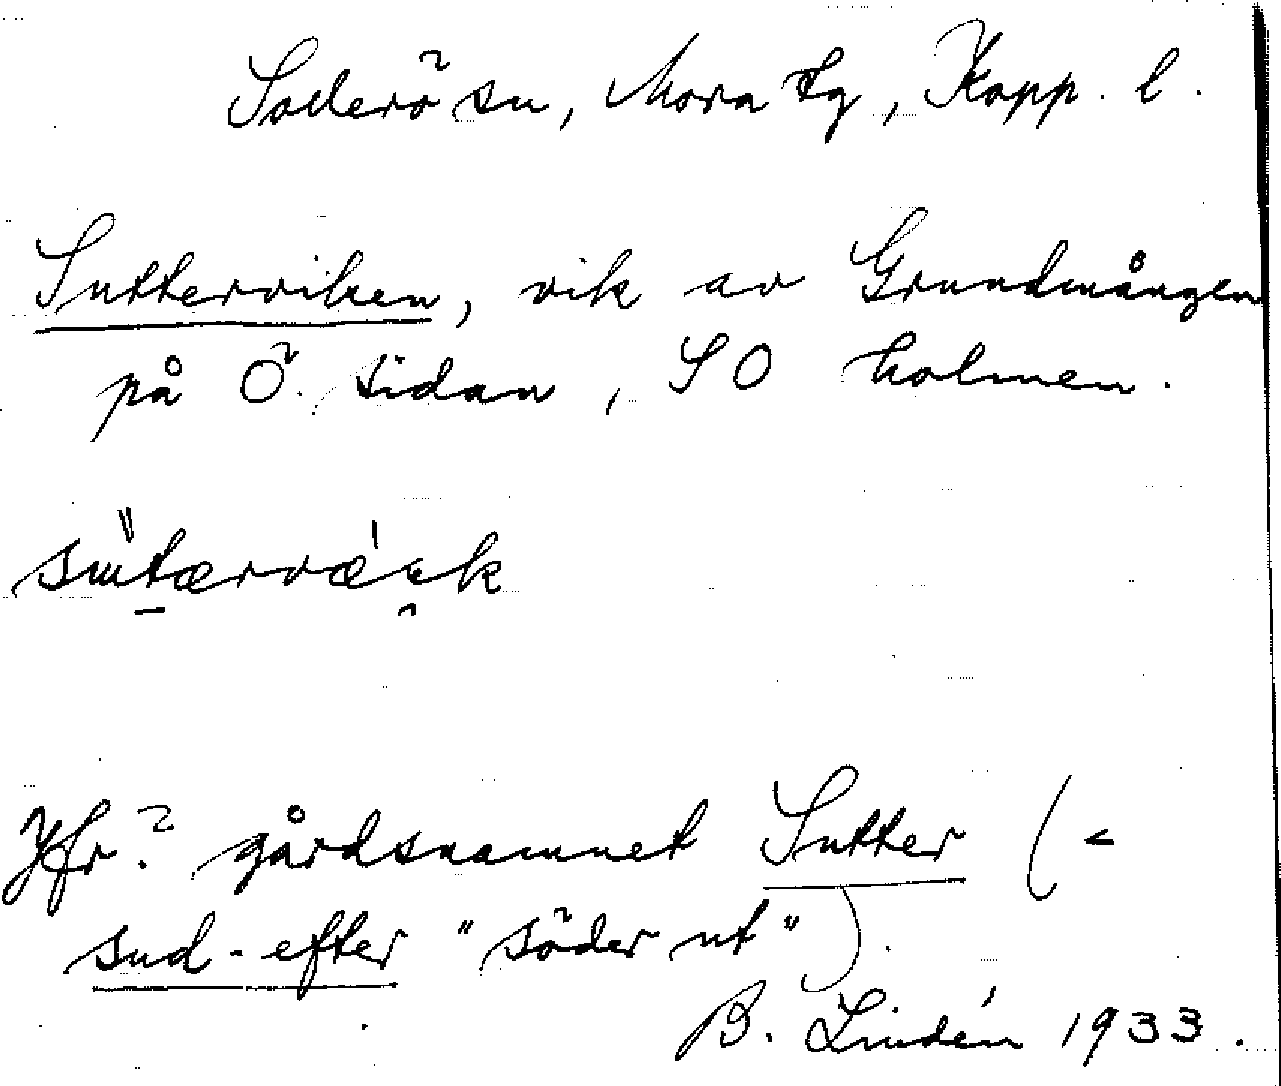 Solleröns sn, Mora tg, Kopp. l.
Sutterviken, vik av Grundmången
på Ö. sidan, SO holmen.
Jfr? gårdsnamnet Sutter (<
sud-efter "söder ut").
B. Lindén 1933.